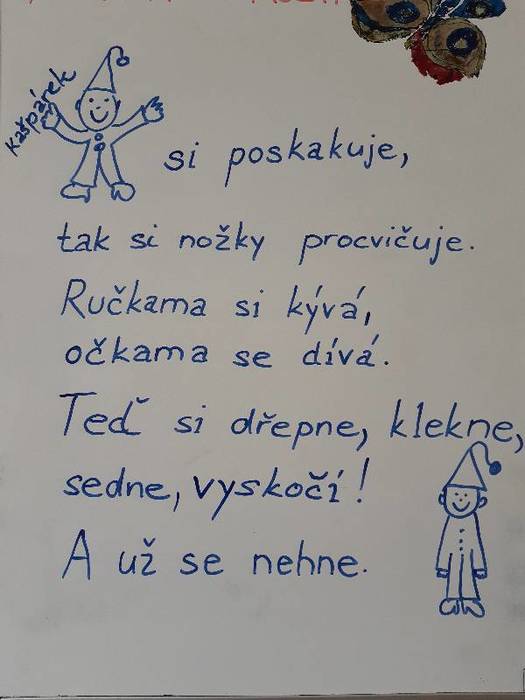 Kašpárek
si poskakuje,
tak si nožky procvičuje.
Ručkama si kývá,
očkama se dívá.
Teď si dřepne, klekne,
sedne, vyskočí!
A už se nehne.